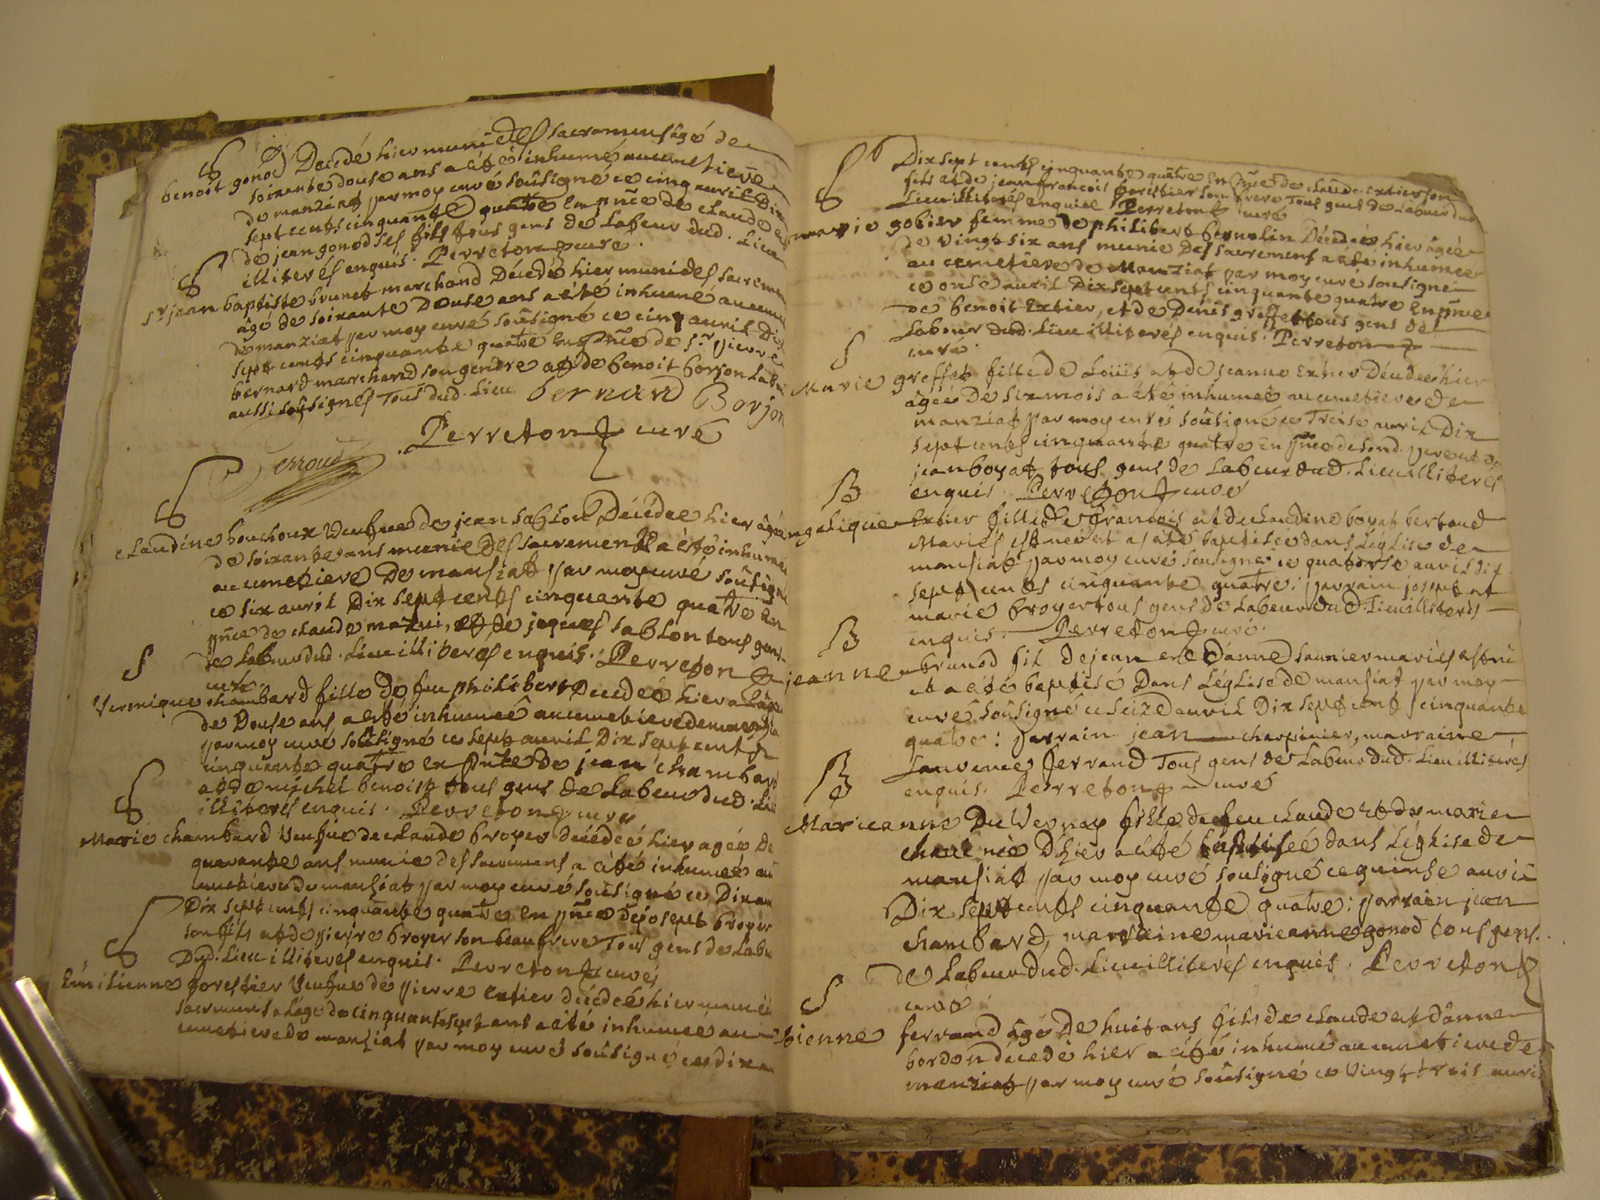 S
benoit gonod Decedé hier muni des sacremens âgé de
soixante douse ans a été inhumé au cimetiere
de manziat par moy curé soûsigné ce cinq avril Dix
sept cents cinquante quatre en pñce de claude et
de jean gonod ses fils tous gens de labeur dud. Lieu
illiterés enquis. Perreton curé.
S
Sr jean baptiste brunet marchand Decedé hier muni des sacremens
âgé de soixante Douse ans a été inhumé au cimetiere
de manziat par moy curé soûsigné ce cinq avril Dix
sept cents cinquante quatre en pñce de Sr pierre
bernard marchand son gendre et de benoit borjon
aussi soûsignés Tous dud. Lieu bernard Borjon
Perreton curé
S
claudine bouchoux Veuhue de jean sablon Décédee hier âgée
de soixante ans munie des sacremens a été inhumée
au cimetiere de manziat par moy curé soûsigné
ce six avril Dix sept cents cinquante quatre en
pñce de claude mazui, et de jaques sablon tous gens
de labeur dud. Lieu illiterés enquis. Perreton
curé
S
Veronique chambard fille de feu philibert Decedée hier âgée
de Douse ans a été inhumée au cimetiere de manziat
par moy curé soûsigné ce sept avril Dix sept cents
cinquante quatre en pñce de jean chambard
et de michel benoist tous gens de labeur dud. Lieu
illiterés enquis. Perreton curé
S
Marie chambard Veuhue de claude broyer decedée hier agée de
quarante ans munie des sacremens a été inhumée au
cimetiere de manziat par moy curé soûsigné ce Dix
Dix sept cents cinquante quatre en pñce de joseph broyer
son fils et de pierre broyer son beaufrere Tous gens de labeur
Dud. Lieu illiterés enquis. Perreton curé
S
Emilienne forestier Veuhue de pierre extier décédée hier munie
sacremens âgée de cinquante sept ans a été inhumee au
cimetiere de manziat par moy curé soûsigné ce dix
Dix sept cents cinquante quatre en pñce de claude extier son
fils et de jean francois forestier son frere Tous gens de labeur dud
Lieu illiterés enquis Perreton curé
S
marie gobier femme de philibert bernolin Décédée hier âgée
de Vingt six ans munie des sacremens a été inhumée
au cimetiere de Manziat par moy curé soûsigné
ce onse avril Dix sept cents cinquante quatre en pñce
de benoit Extier, et de Denis greffet tous gens de
Labeur dud. Lieu illiterés enquis. Perreton
curé.
S
Marie greffet fille de Loüis et de jeanne Extier Décedée hier
âgée de six mois a été inhumée au cimetiere de
manziat par moy curé soûsigné ce Treise avril Dix
sept cents cinquante quatre en pñce de sond. pere et de
jean boyat tous gens de Labeur dud. Lieu illiterés
enquis. Perreton curé
B
angelique Extier fille de francois et de claudine boyat bertoud
Mariés est née et a été baptisee dans L'eglise de
manziat par moy curé soûsigné ce quatorse avril dix
sept cents cinquante quatre: parrain joseph et
marie broyer tous gens de Labeur dud. Lieu illiterés
enquis. Perreton curé.
B
jeanne brunod fil de jean et d'anne saunier mariés est né
et a été baptisé Dans L'eglise de manziat par moy
curé soûsigné ce seize avril Dix sept cent cinquante
quatre: parrain jean charpinier, marraine
Laurence ferrand Tous gens de Labeur dud. Lieu illiterés
enquis. Perreton curé
B
Marieanne Duvernay fille de feu claude et de marie
née D'hier a été baptisée dans L'eglise de
manziat par moy curé soûsigné ce quinse avril
Dix sept cents cinquante quatre: parrain jean
chambard, marraine marieanne gonod tous gens
de Labeur dud. Lieu illiterés enquis. Perreton
curé.
S
ferrand âgé De huit ans fils de claude et d'anne
bordon décédé hier a été inhumé au cimetiere de
manziat par moy curé soûsigné ce Vingt trois avril